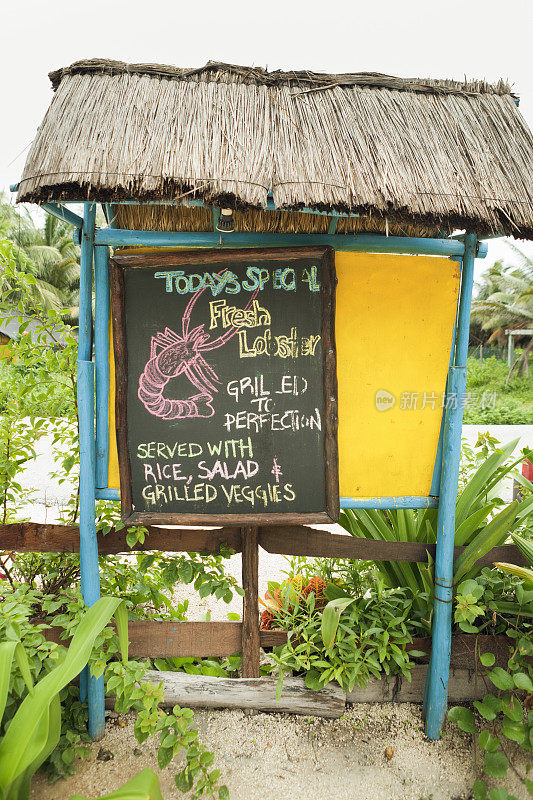 TODAY'S SPECIAL
Fresh
Lobster
GRILLED
TO
PERFECTION
SERVED WITH
RICE, SALAD &
GRILLED VEGGIES
新图网